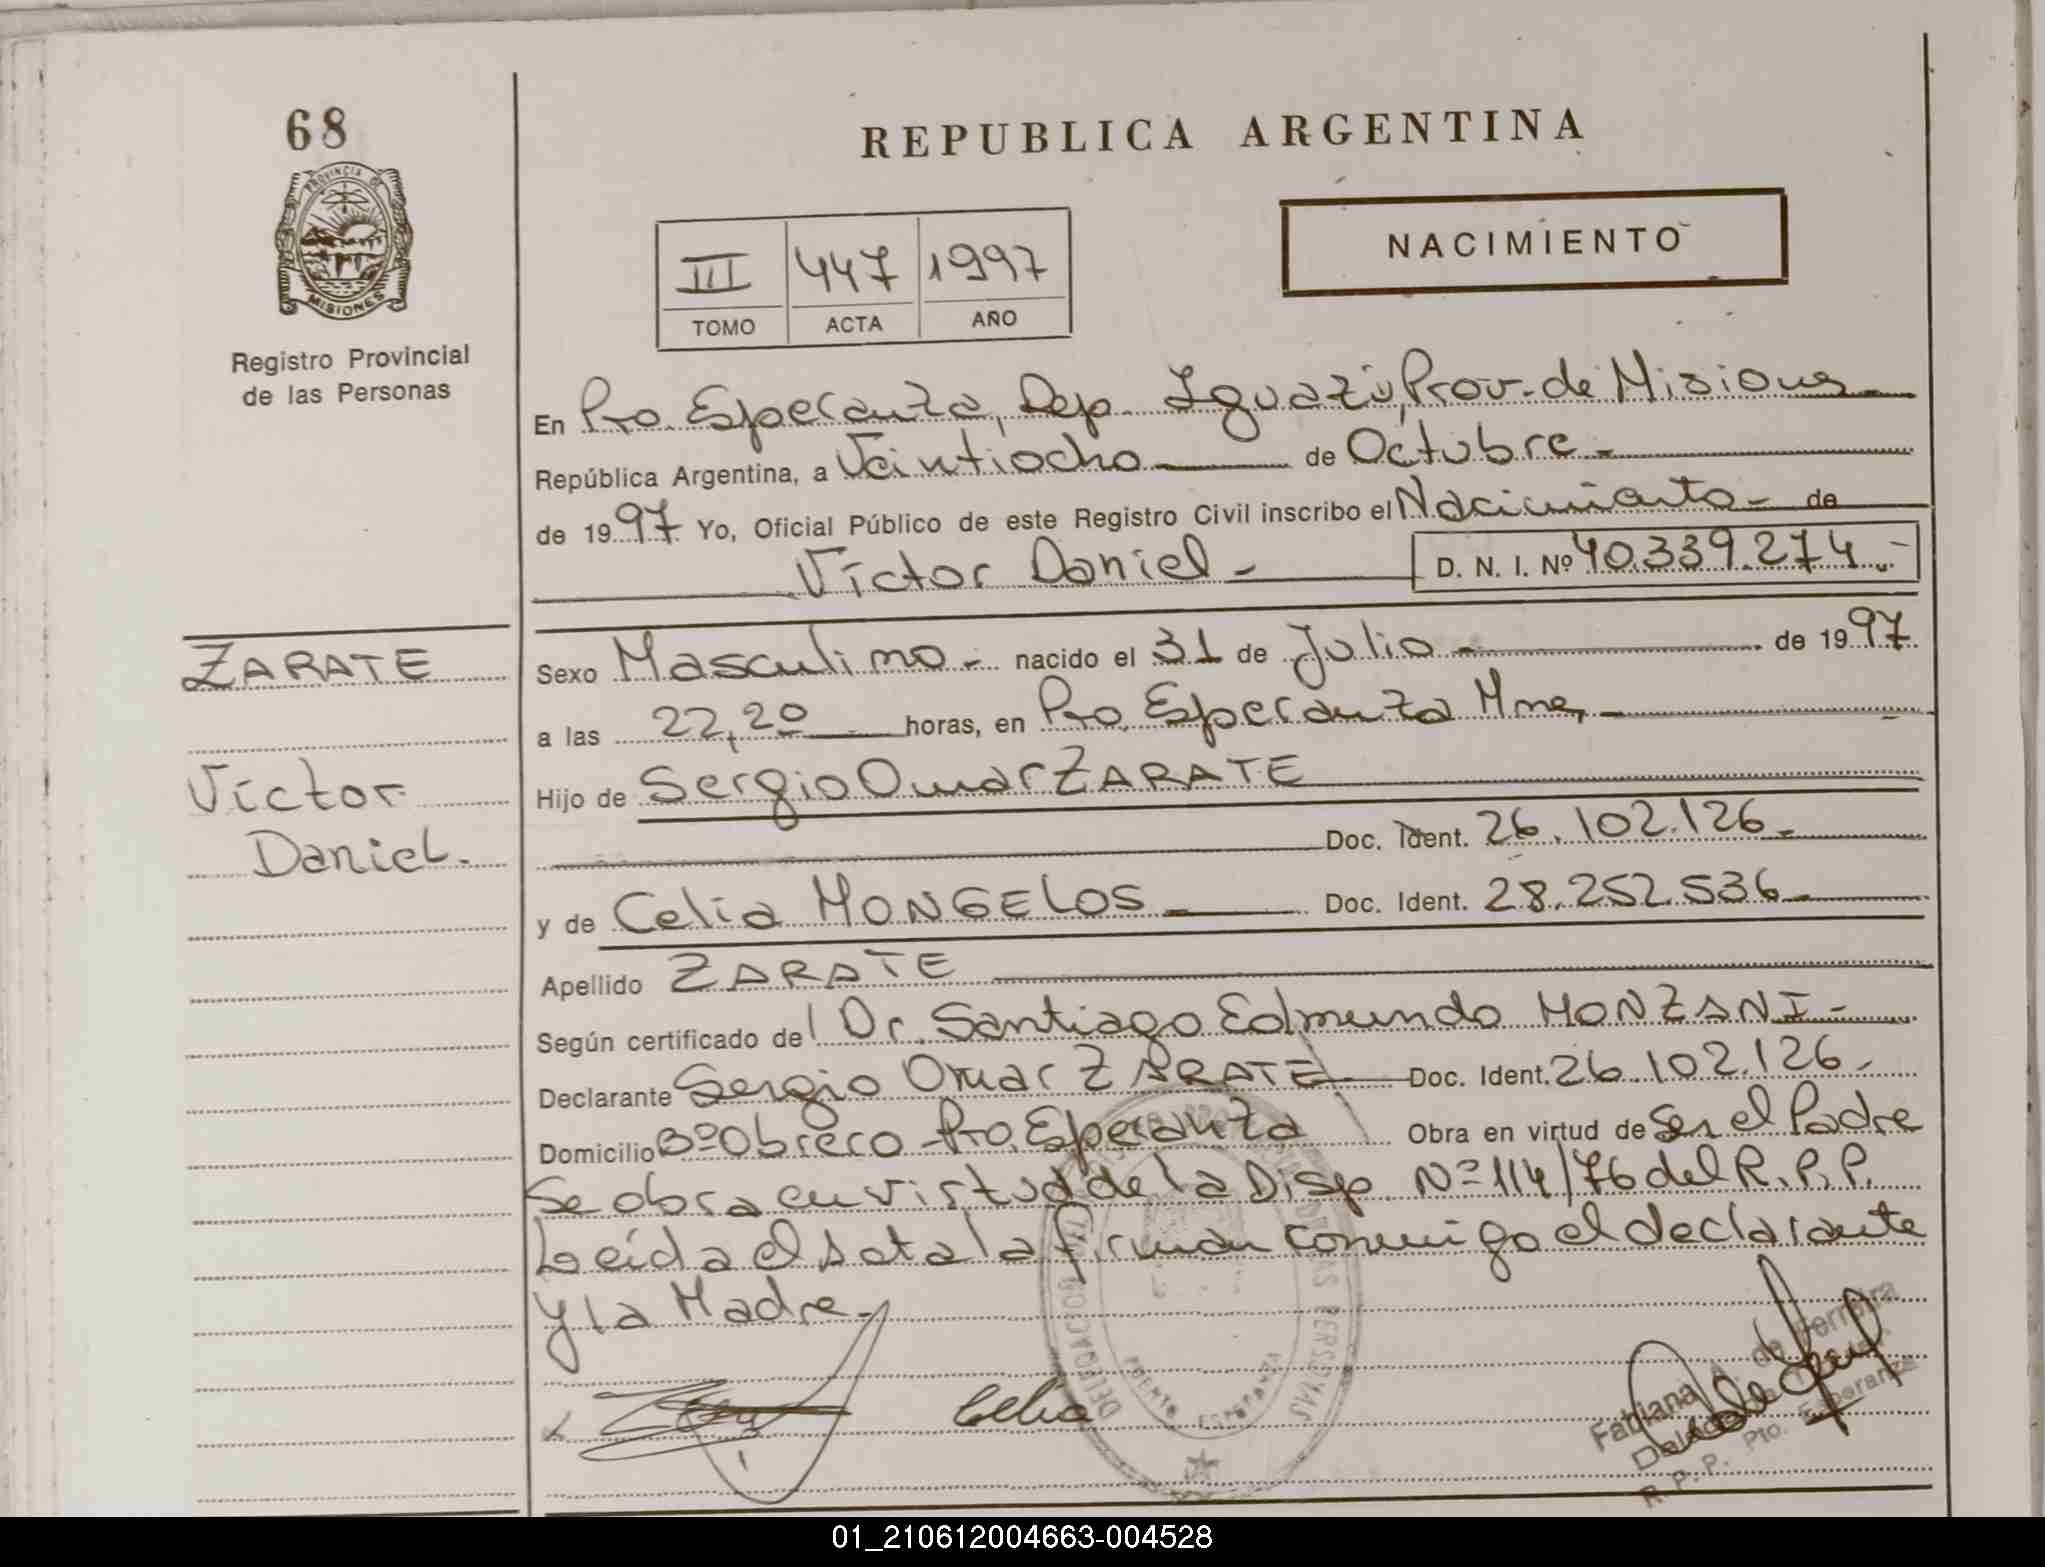 68
REPUBLICA ARGENTINA
PROVINCIA DE
MISIONES
Registro Provincial
de las Personas
NACIMIENTO
III 447 1997
TOMO ACTA AÑO
En Pto. Esperanza, Dep. Iguazú, Prov. de Misiones
República Argentina, a Veintiocho de Octubre.-
de 1997 Yo, Oficial Público de este Registro Civil inscribo el Nacimiento - de
Víctor Daniel - D. N. I. Nº 40.339.274.-
ZARATE
Víctor
Daniel.
Sexo Masculino - nacido el 31 de Julio - de 1997
a las 22,20 horas, en Pto. Esperanza Mnes -
Hijo de Sergio Omar ZARATE
Doc. Ident. 26.102.126.-
y de Celia MONGELOS - Doc. Ident. 28.252.536 -
Apellido ZARATE
Según certificado del Dr. Santiago Edmundo MONZANI -
Declarante Sergio Omar ZARATE Doc. Ident. 26.102.126.
Domicilio Bº Obrero - Pto. Esperanza Obra en virtud de Ser el Padre
Se obra en virtud de la Disp. Nº 114/76 del R.P.P.
Leída el Acta la firman conmigo el declarante
y la Madre.
Celia
PUERTO ESPERANZA
Fabiana A. de Ferreira
R. P. P. Pto. Esperanza
01_210612004663-004528